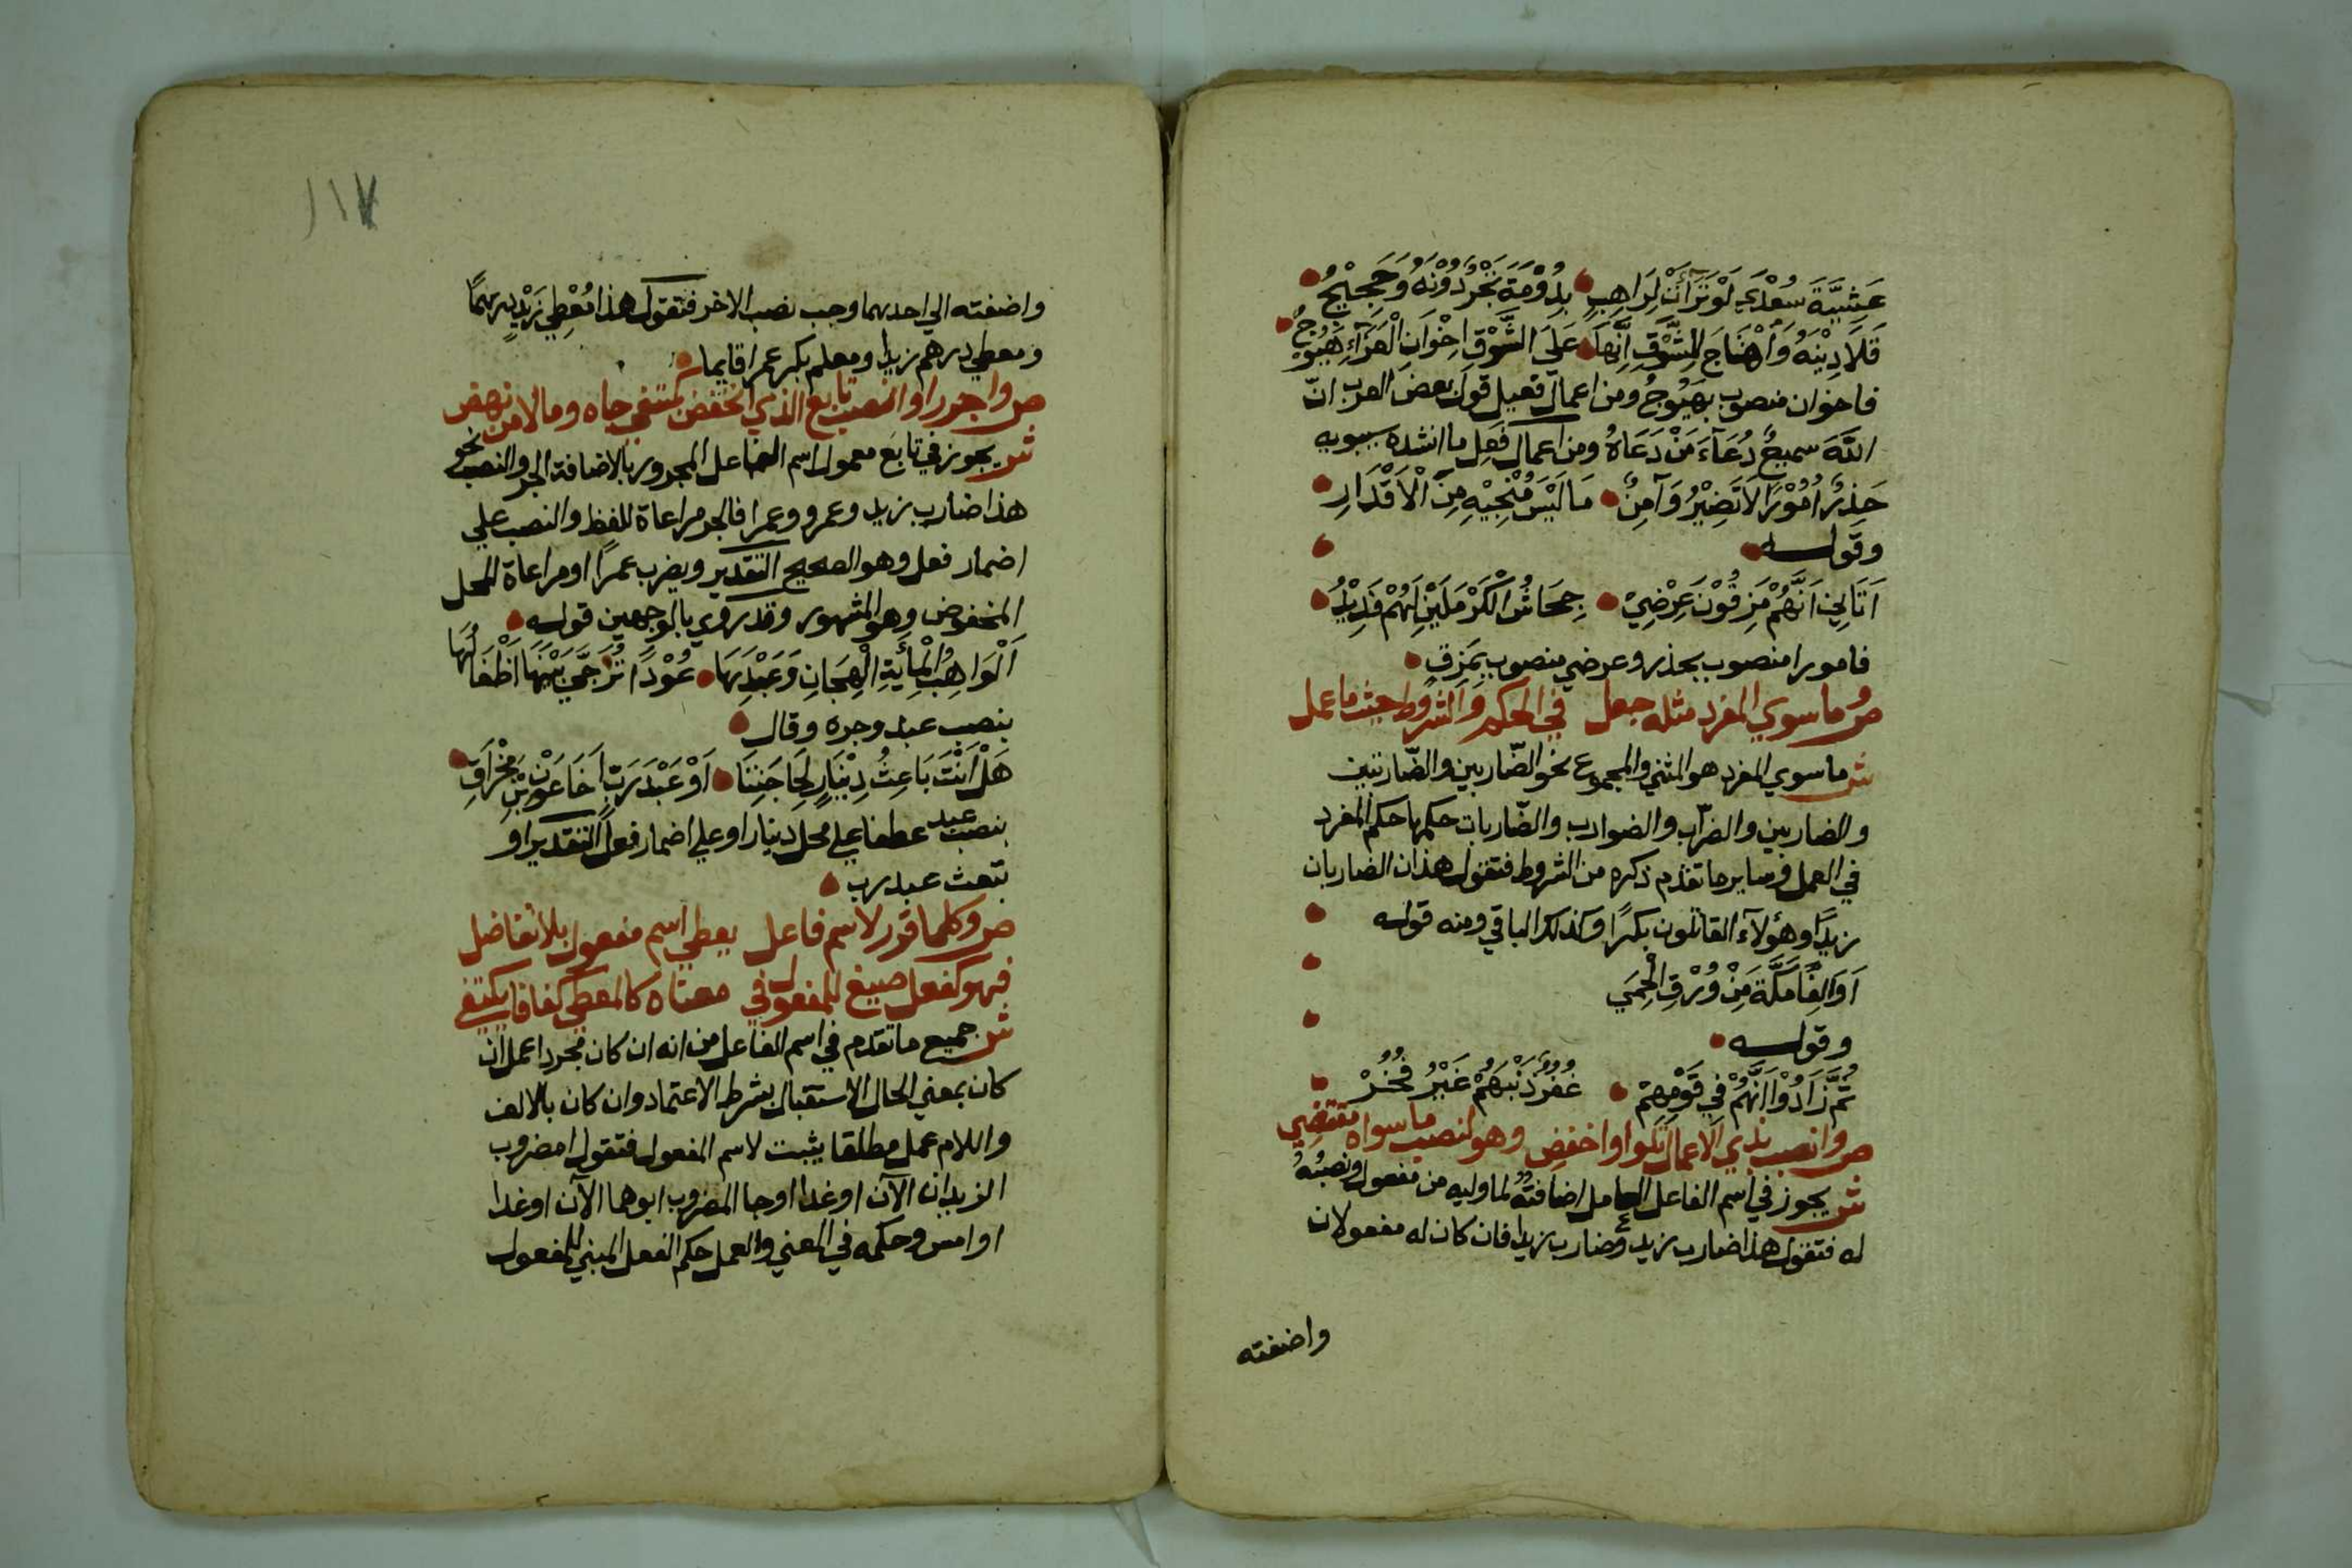 عَشِيَّةَ سُعْدَي لَوْ تَرَآئَتْ لِرَاهِبٍ بِدُوْمَةَ تَجْرٌ دُوْنَهُ وَحَجِيْجُ
قَلَا دِيْنَهُ وَاهْتَاجَ لِلشَّوْقِ اِنَّهَا عَلَي الشَّوْقِ اِخْوَانَ الْعَزَآءِ هَيُوْجُ
فاخوان منصوب بهَيُوجُ ومن اعمال فعيل قول بعض العرب انّ
اللّٰهَ سميعٌ دُعَآءَ مَنْ دَعَاهُ ومن اعمال فَعِل ما انشده سيبويه
حَذِرٌ اُمُوْرًا لَا تَضِيْرُ وَآمِنٌ مَا لَيْسَ مُنْجِيْهِ مِنَ الْاَقْدَارِ
وقوله
اَتَانِيْ اَنَّهُمْ مَزِقُوْنَ عِرْضِيْ جِحَاشُ الْكَرْمَلَيْنِ لَهُمْ فَدِيْدُ
فامورا منصوب بحذر وعرضي منصوب بِمَزِقٍ
ص وما سوي المفرد مثله جعل في الحكم والشروط حيث ما عمل
ش ما سوي المفرد هو المثني والمجموع نحو الضّاربين والضّاربتين
والضاربين والضرّاب والضوارب والضّاربات حكمها حكم المفرد
في العمل وساير ما تقدم ذكره من الشروط فتقول هذان الضاربان
زيدًا وهؤلآء القاتلون بكرًا وكذلك الباقي ومنه قوله
اَوَالِفًا مَكَّةَ مِنْ وُرْقِ الْحَمِي
وقوله
ثُمَّ زَادُوْا اَنَّهُمْ فِي قَوْمِهِمْ غُفُرٌ ذَنْبَهُمْ غَيْرُ فُخُرْ
ص وانصب بذي الاعمال تلوا واخفض وهو لنصب ما سواه مقتضي
ش يجوز في اسم الفاعل العامل اضافتُهُ لما وليه من مفعول ونصبُهُ
له فتقول هذا ضارب زيد وضارب زيدا فان كان له مفعولان
واضفته
١١٧
واضفته الي احدهما وجب نصب الاخر فتقول هذا مُعْطِي زَيْدٍ درهمًا
ومعطي درهم زيدا ومعلم بكر عمرا قايما
ص واجرر او انصب تابع الذي انخفض كمبتغي جاه ومالا من نهض
ش يجوز في تابع معمول اسم الفاعل المجرور بالاضافة الجر والنصب نحو
هذا ضارب زيد وعمرو وعمرا فالجر مراعاة للفظ والنصب علي
اضمار فعل وهو الصحيح التقدير ويضرب عمرًا او مراعاة لمحل
المخفوض وهو المشهور وقد روي بالوجهين قوله
اَلْوَاهِبُ الْمِائَةِ الْهِجَانِ وَعَبْدِهَا عُوْذًا تُزَجِّي بَيْنَهَا اَطْفَالَهَا
بنصب عبد وجره وقال
هَلْ اَنْتَ بَاعِثُ دِيْنَارٍ لِحَاجَتِنَا اَوْ عَبْدَ رَبٍّ اَخَا عَوْنِ بْنِ مِخْرَاقِ
بنصب عبد عطفا علي محل دينار او علي اضمار فعل التقدير او
تبعث عبد رب
ص وكلما قرر لاسم فاعل يعطي اسم مفعول بلا تفاضل
فهو كفعل صيغ للمفعول في معناه كالمعطي كفافا يكتفي
ش جميع ما تقدم في اسم الفاعل من انه ان كان مجردا عمل ان
كان بمعني الحال او الاستقبال بشرط الاعتماد وان كان بالالف
واللام عمل مطلقا يثبت لاسم المفعول فتقول امضروب
الزيدان الآن او غدا او جا المضروب ابوهما الآن او غدا
او امس وحكمه في المعني والعمل حكم الفعل المبني للمفعول